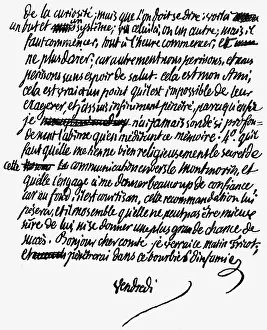 De la curiosité; mais que l'on soit se dire: voilà
un but et un système; va celui là, on un autre; mais il
faut commencer, tout à l'heure commencer, et
ne plus barrer; car autrement nous perissons, et nous
perissons sans espoir de salut. cela est mon ami,
cela est vrai à un point qu'il est impossible de leur
exagerer, et j'en suis infiniment pénétré, parce qu'enfin
je n'ai jamais sondé si profon-
dement l'abime qu'en méditant ce mémoire. 4° qu'il
faut qu'elle me tienne bien religieusement le secret de
cette communication envers le Montmorin, et
qu'elle l'engage à me donner beaucoup de confiance
car au fond, il est courtisan, cette recommandation lui
peserau, et il me semble qu'elle ne peut pas être mieux
sure de lui ni se donner une plus grande chance de
succès. Bonjour cher comte je verrai ce matin
et penetrai dans ce bourbier d'infamie.
Vendredi